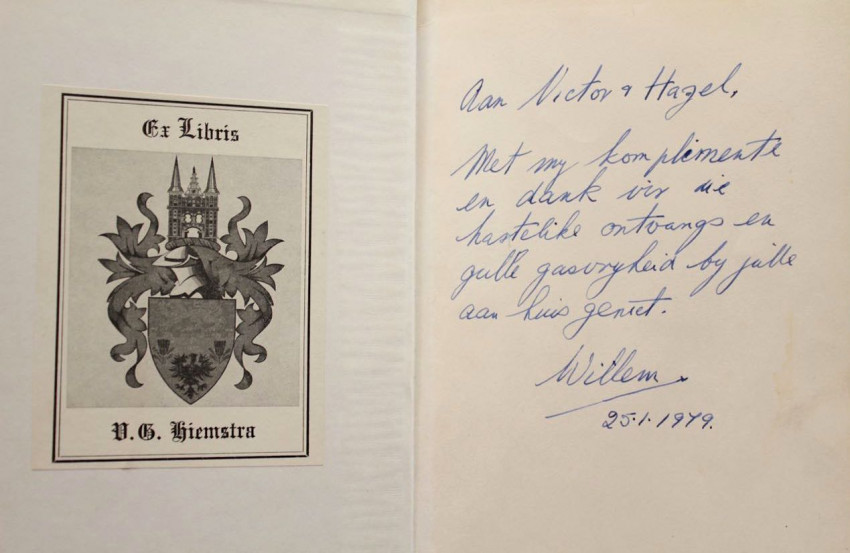 Ex Libris
V. G. Hiemstra
Aan Victor & Hazel,
Met my komplimente
en dank vir die
hartelike ontvangs en
gulle gasvryheid by julle
aan huis geniet.
Willem
25.1.1979.